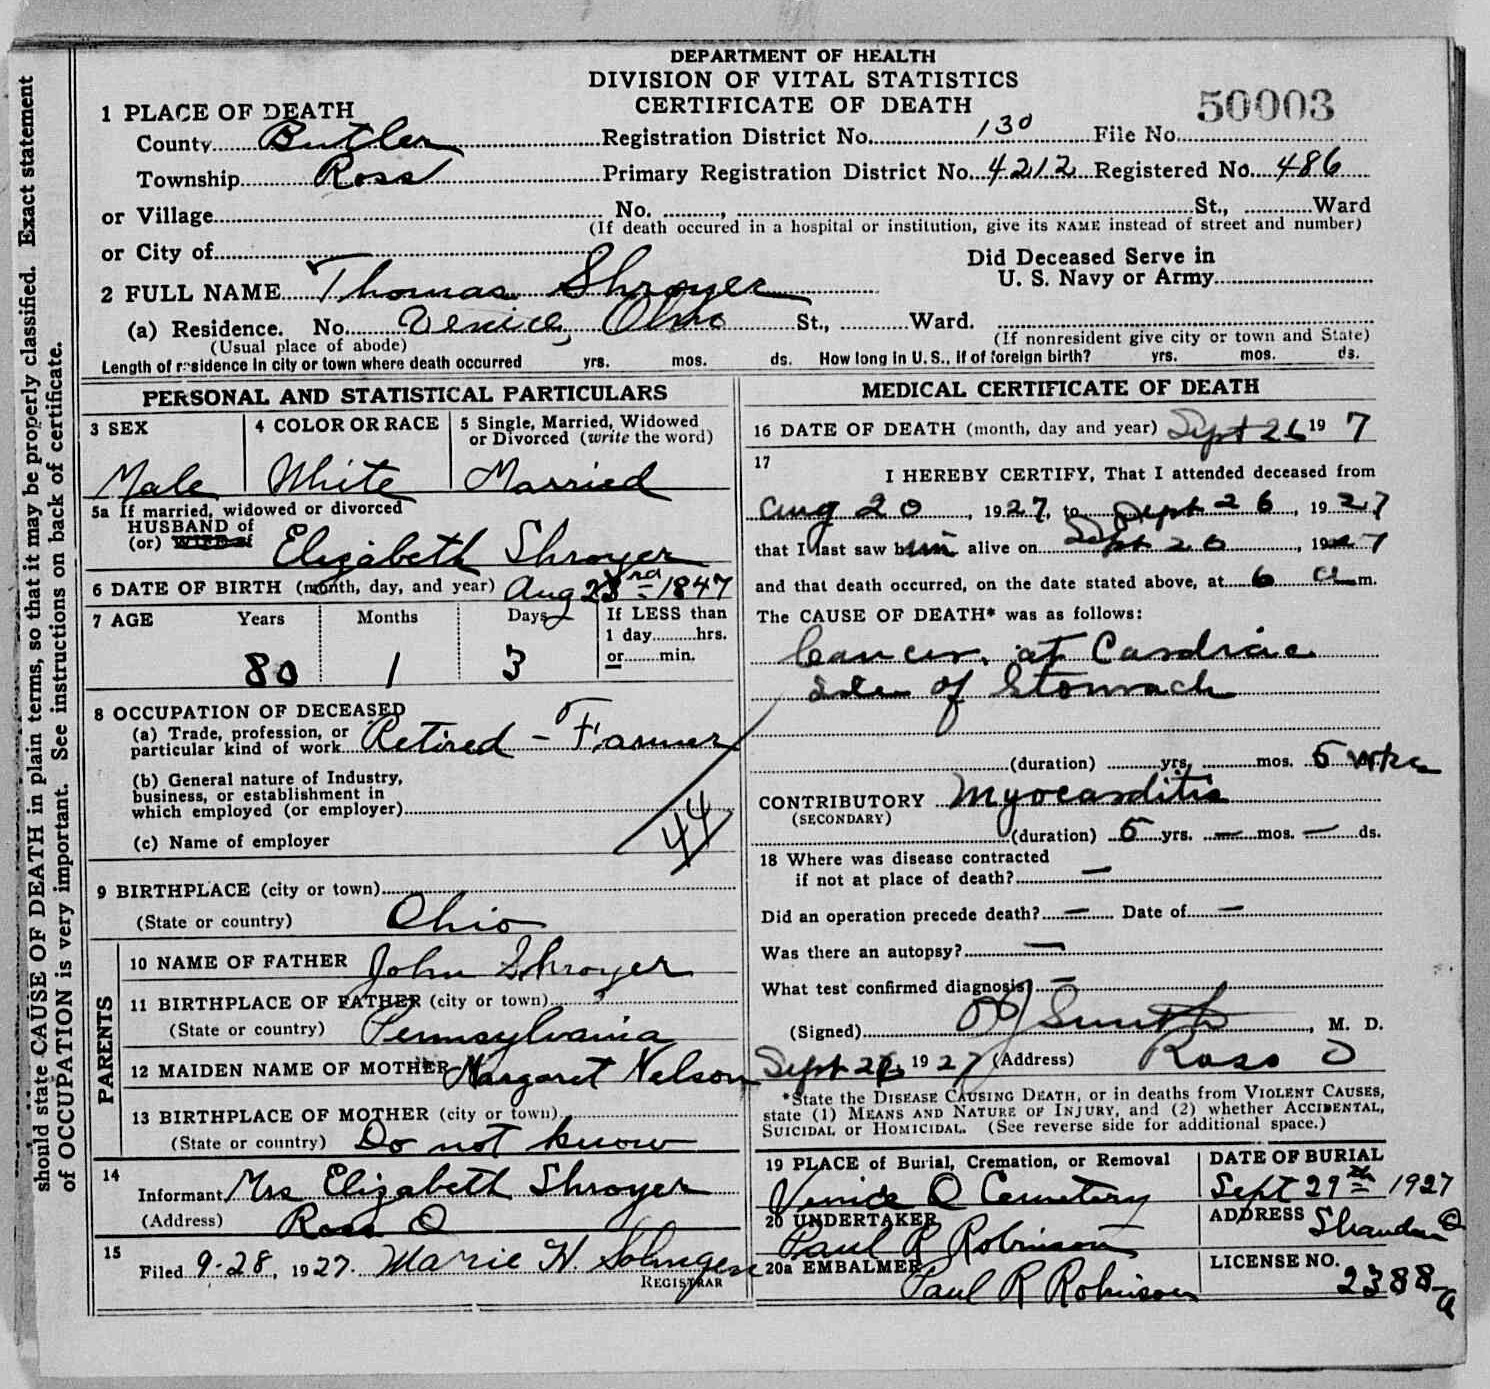 should state CAUSE OF DEATH in plain terms, so that it may be properly classified. Exact statement
of OCCUPATION is very important. See instructions on back of certificate.
DEPARTMENT OF HEALTH
DIVISION OF VITAL STATISTICS
CERTIFICATE OF DEATH
50003
1 PLACE OF DEATH
County Butler Registration District No. 130 File No.
Township Ross Primary Registration District No. 4212 Registered No. 486
or Village No. , St., Ward
(If death occured in a hospital or institution, give its NAME instead of street and number)
or City of
Did Deceased Serve in
U. S. Navy or Army
2 FULL NAME Thomas Shroyer
(a) Residence. No. Venice, Ohio St., Ward.
(Usual place of abode) (If nonresident give city or town and State)
Length of residence in city or town where death occurred yrs. mos. ds. How long in U. S., if of foreign birth? yrs. mos. ds.
PERSONAL AND STATISTICAL PARTICULARS
3 SEX 4 COLOR OR RACE 5 Single, Married, Widowed
or Divorced (write the word)
Male White Married
5a If married, widowed or divorced
HUSBAND of
(or) WIFE of Elizabeth Shroyer
6 DATE OF BIRTH (month, day, and year) Aug 23rd 1847
7 AGE Years Months Days If LESS than
1 day hrs.
or min.
80 1 3
8 OCCUPATION OF DECEASED
(a) Trade, profession, or
particular kind of work Retired - Farmer
(b) General nature of Industry,
business, or establishment in
which employed (or employer)
44
(c) Name of employer
9 BIRTHPLACE (city or town)
(State or country) Ohio
PARENTS
10 NAME OF FATHER John Shroyer
11 BIRTHPLACE OF FATHER (city or town)
(State or country) Pennsylvania
12 MAIDEN NAME OF MOTHER Margaret Nelson
13 BIRTHPLACE OF MOTHER (city or town)
(State or country) Do not know
14
Informant Mrs Elizabeth Shroyer
(Address) Ross O
15
Filed 9-28, 1927. Marie H.
REGISTRAR
MEDICAL CERTIFICATE OF DEATH
16 DATE OF DEATH (month, day and year) Sept 26 19 7
17
I HEREBY CERTIFY, That I attended deceased from
Aug 20, 1927, to Sept 26, 1927
that I last saw him alive on Sept 20, 1927
and that death occurred, on the date stated above, at 6 a m.
The CAUSE OF DEATH* was as follows:
Cancer, at Cardiac
of Stomach
(duration) yrs. mos. 5 wks
CONTRIBUTORY Myocarditis
(SECONDARY)
(duration) 5 yrs. — mos. — ds.
18 Where was disease contracted
if not at place of death? —
Did an operation precede death? — Date of —
Was there an autopsy? —
What test confirmed diagnosis? —
(Signed) Smith, M. D.
Sept 1927 (Address) Ross O
*State the DISEASE CAUSING DEATH, or in deaths from VIOLENT CAUSES,
state (1) MEANS AND NATURE OF INJURY, and (2) whether ACCIDENTAL,
SUICIDAL or HOMICIDAL. (See reverse side for additional space.)
19 PLACE of Burial, Cremation, or Removal DATE OF BURIAL
Venice O Cemetery Sept 29th 1927
20 UNDERTAKER ADDRESS
Paul R Robinson Shandon O
20a EMBALMER LICENSE NO.
Paul R Robinson 2388-a